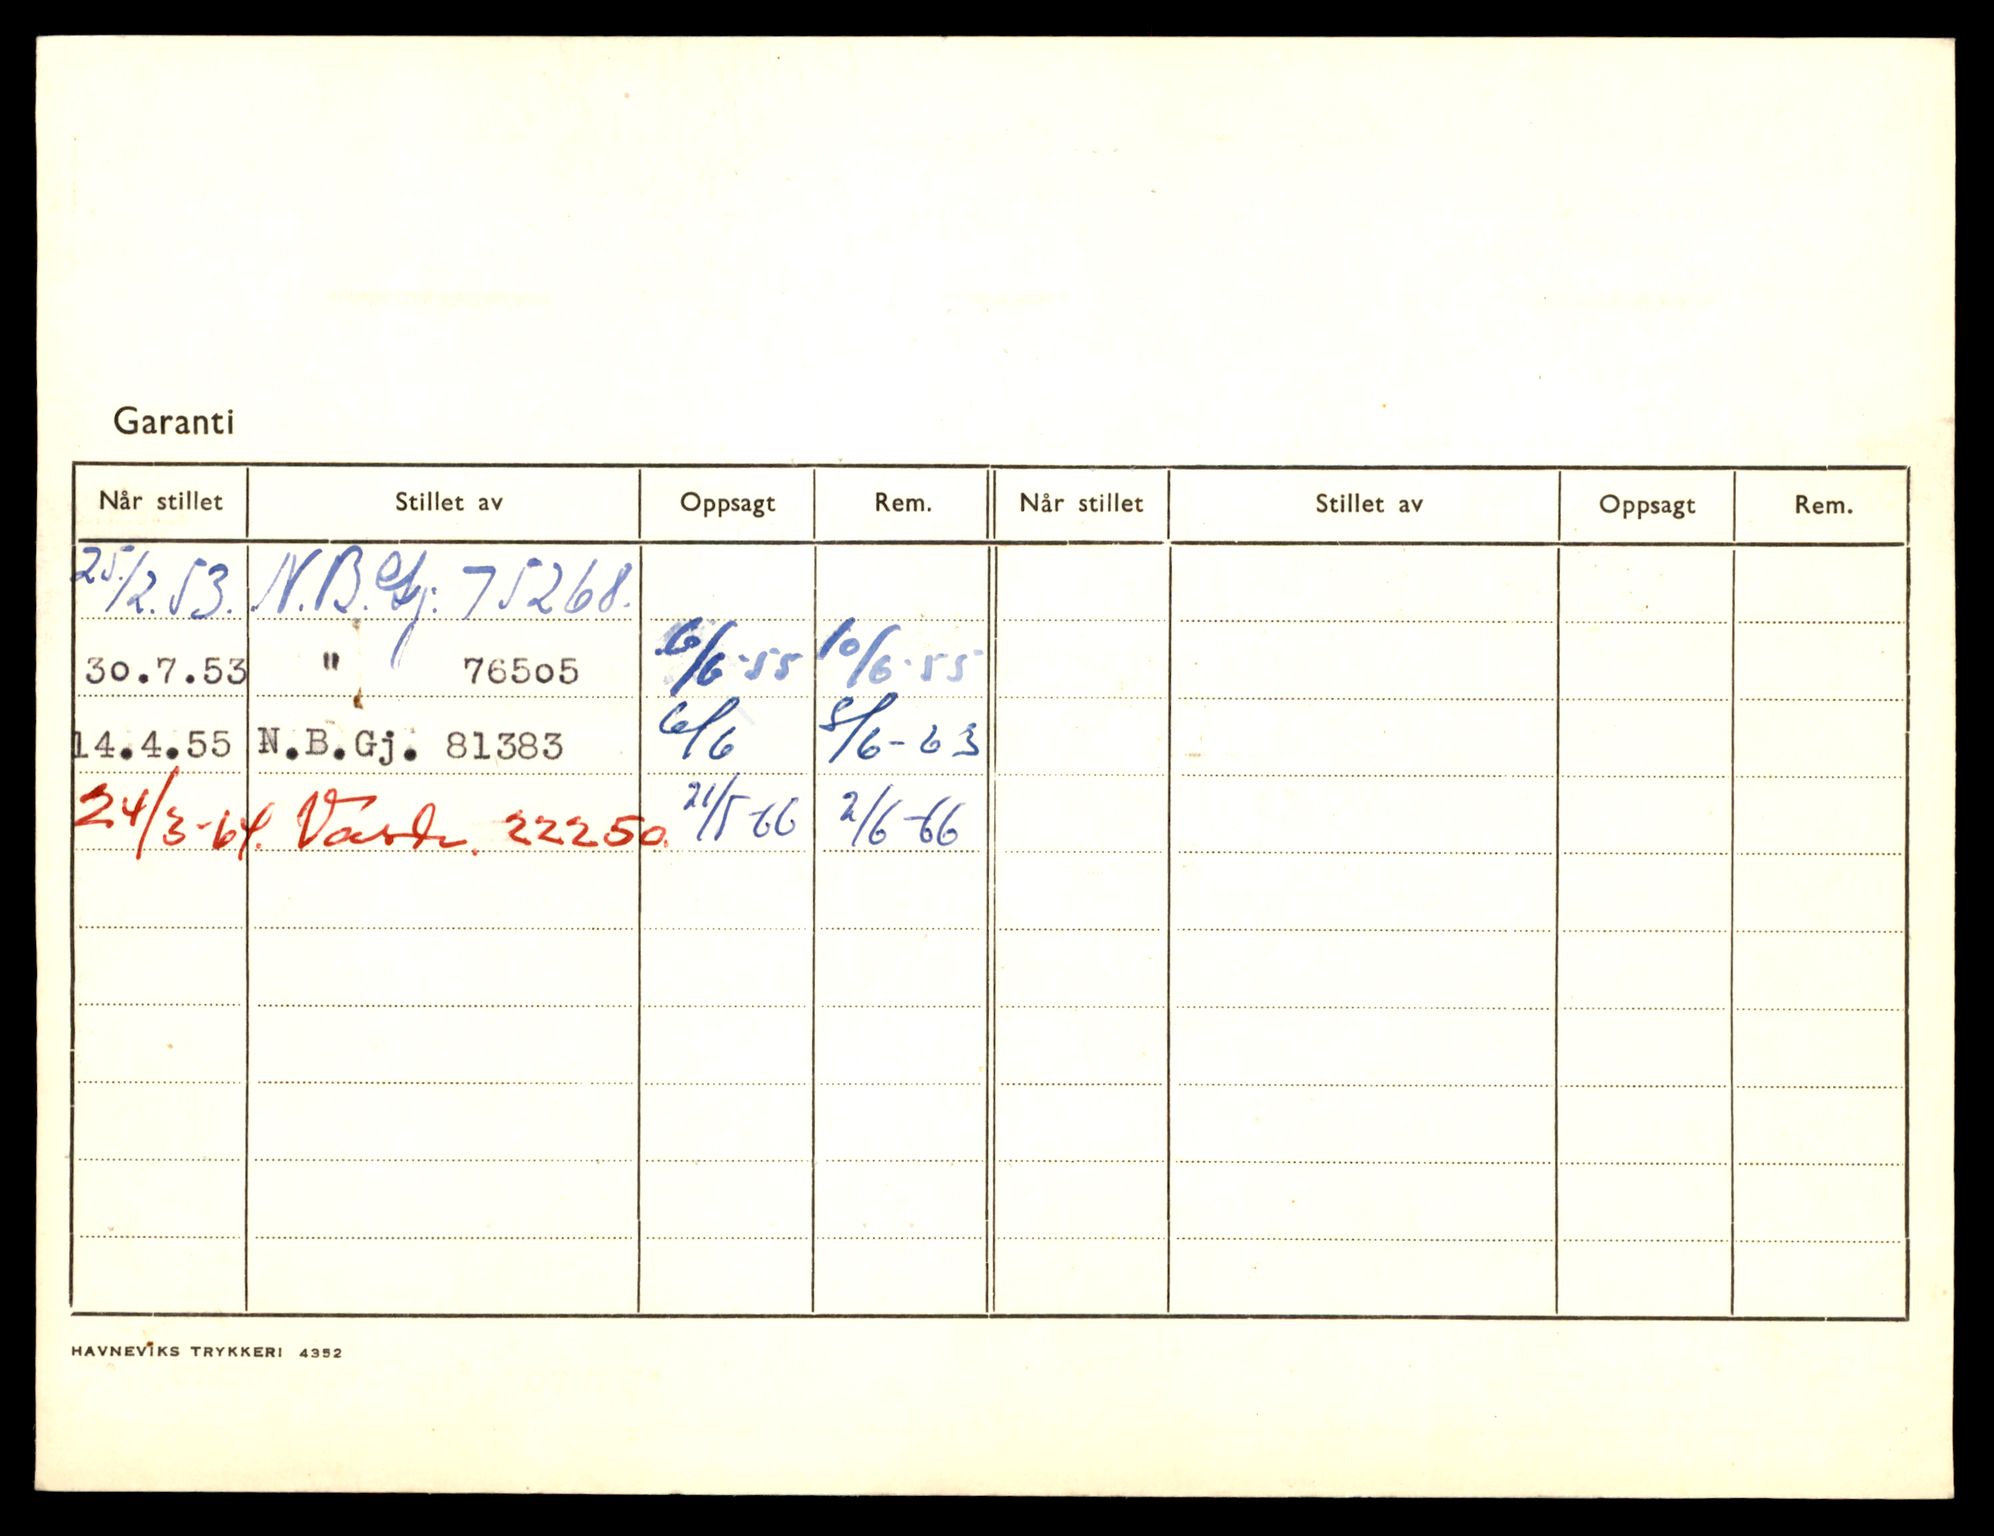 Garanti
Når stillet Stillet av Oppsagt Rem. Når stillet Stillet av Oppsagt Rem.
25/2.53. N.B.Gj. 75268.
30.7.53 " 76505 6/6-55 10/6-55
14.4.55 N.B.Gj. 81383 6/6 8/6-63
24/3-64. 22250. 21/5-66 2/6-66
HAVNEVIKS TRYKKERI 4352